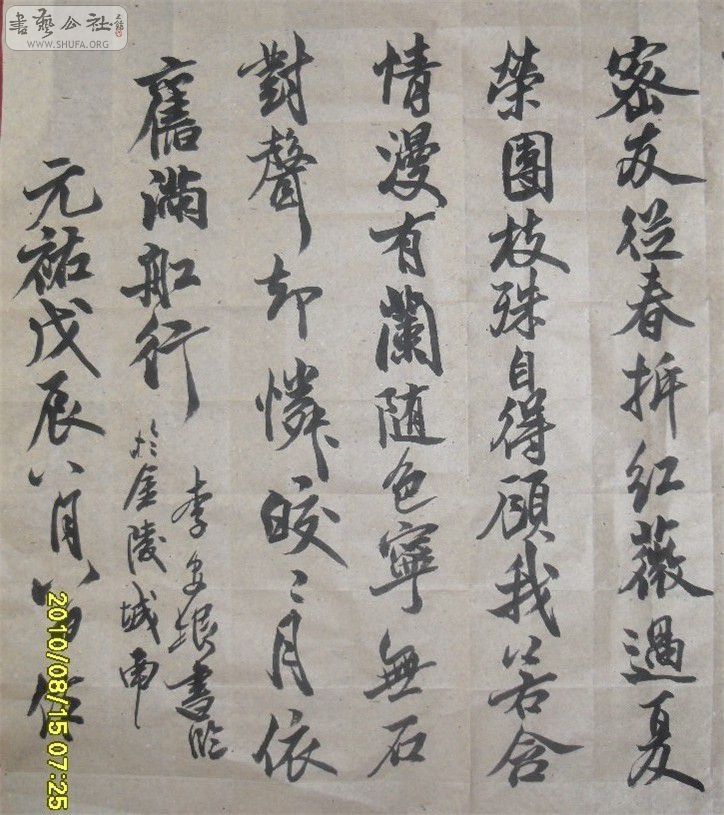 書藝公社
WWW.SHUFA.ORG
密友從春拆紅薇過夏
榮團枝殊自得顧我若含
情漫有蘭随色寧無石
對聲却憐皎〻月依
舊滿船行
李書臨
於金陵城南
元祐戊辰八月八日作
2010/08/15 07:25